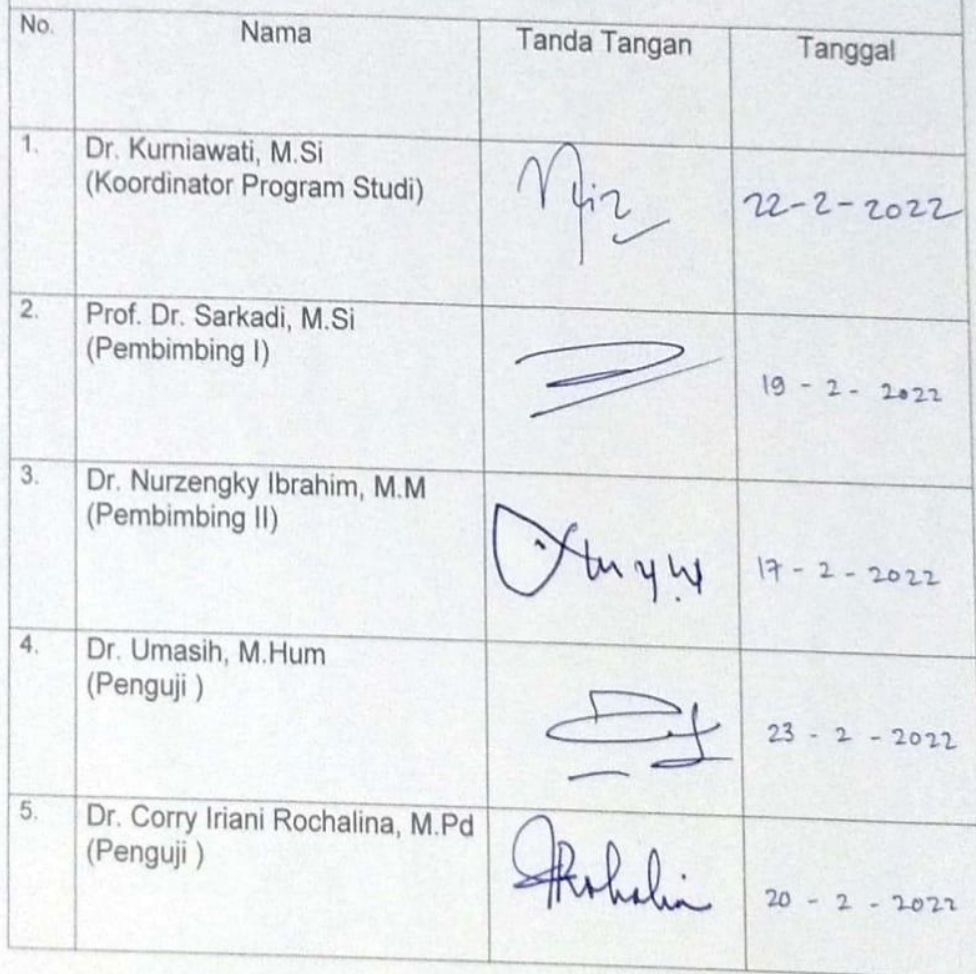 No. Nama Tanda Tangan Tanggal
1. Dr. Kurniawati, M.Si
(Koordinator Program Studi)
22-2-2022
2. Prof. Dr. Sarkadi, M.Si
(Pembimbing I)
19 - 2 - 2022
3. Dr. Nurzengky Ibrahim, M.M
(Pembimbing II)
17 - 2 - 2022
4. Dr. Umasih, M.Hum
(Penguji )
23 - 2 - 2022
5. Dr. Corry Iriani Rochalina, M.Pd
(Penguji )
20 - 2 - 2022